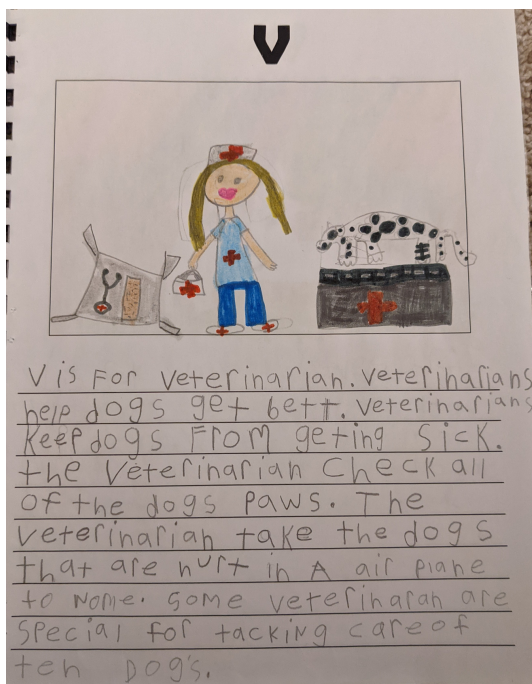 V
V is For Veterinarian. Veterinarians
help dogs get bett. Veterinarians
Keep dogs From geting Sick.
the Veterinarian Check all
Of the dogs Paws. The
Veterinarian take the dogs
that are hurt in A air plane
to Nome. Some veterinaran are
Special for tacking care of
ten Dog's.